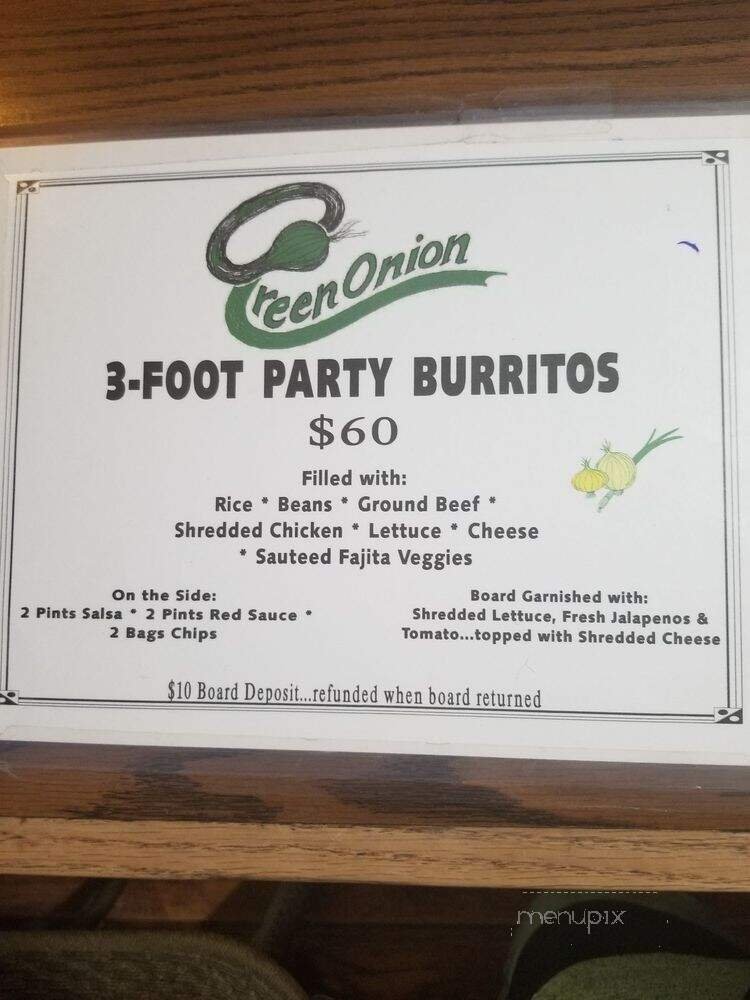 Green Onion
3-FOOT PARTY BURRITOS
$60
Filled with:
Rice * Beans * Ground Beef *
Shredded Chicken * Lettuce * Cheese
* Sauteed Fajita Veggies
On the Side:
2 Pints Salsa * 2 Pints Red Sauce *
2 Bags Chips
Board Garnished with:
Shredded Lettuce, Fresh Jalapenos &
Tomato...topped with Shredded Cheese
$10 Board Deposit...refunded when board returned
menupix